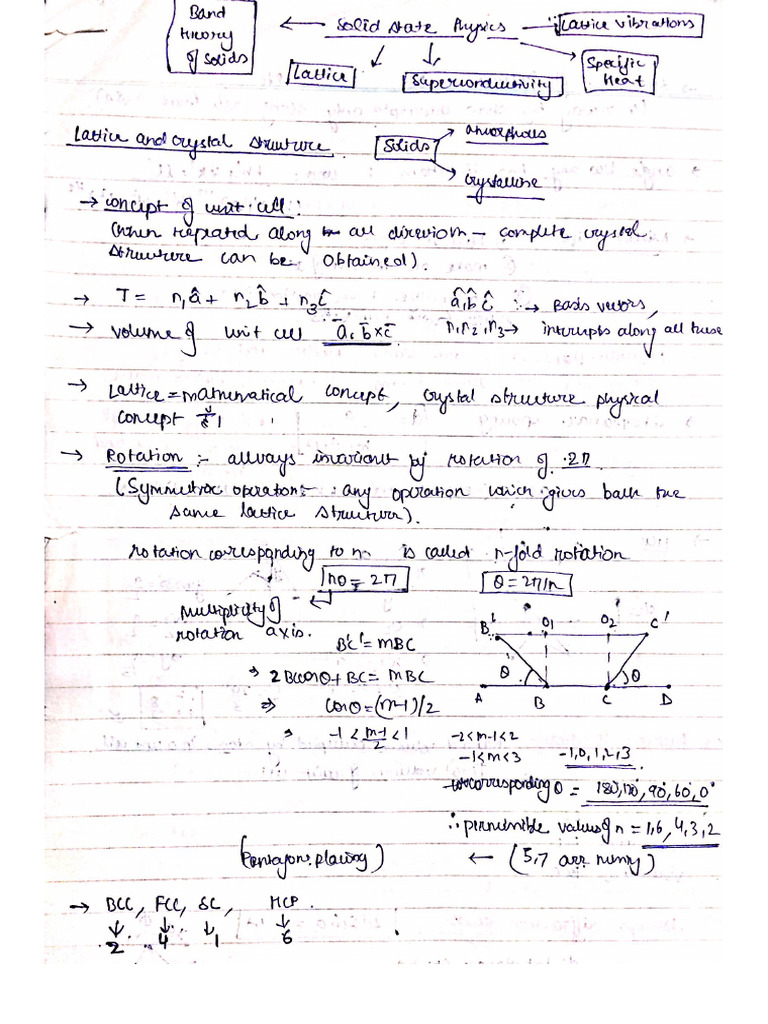 Band theory of Solids
Solid State Physics
Lattice vibrations
Lattice
Superconductivity
Specific Heat
Lattice and Crystal Structure
Solids
amorphous
Crystalline
→ Concept of unit cell:
(when repeated along all direction – complete crystal
structure can be obtained).
→ T = n₁â + n₂b̂ + n₃ĉ
â, b̂, ĉ → Basis vectors,
→ Volume of unit cell a̅. b̅×c̅
n₁, n₂, n₃ → intercepts along all these
→ Lattice = mathematical concept, crystal structure physical
concept
→ Rotation :- always invariant by rotation of 2π
(Symmetric operation :- any operation which gives back the
same lattice structure).
rotation corresponding to n is called n-fold rotation
nθ = 2π
θ = 2π/n
Multiplicity of
rotation axis.
B'C' = mBC
⇒ 2BCcosθ + BC = mBC
⇒ cosθ = (m-1)/2
⇒ -1 < (m-1)/2 < 1
B' O₁ O₂ C'
θ θ
A B C D
-2<m-1<2
-1<m<3
-1,0,1,2,3
corresponding θ = 180°,120°,90°,60°,0°
∴ permissible values of n = 1,6,4,3,2
← (5,7 are missing)
→ BCC, FCC, SC, HCP.
2 4 1 6